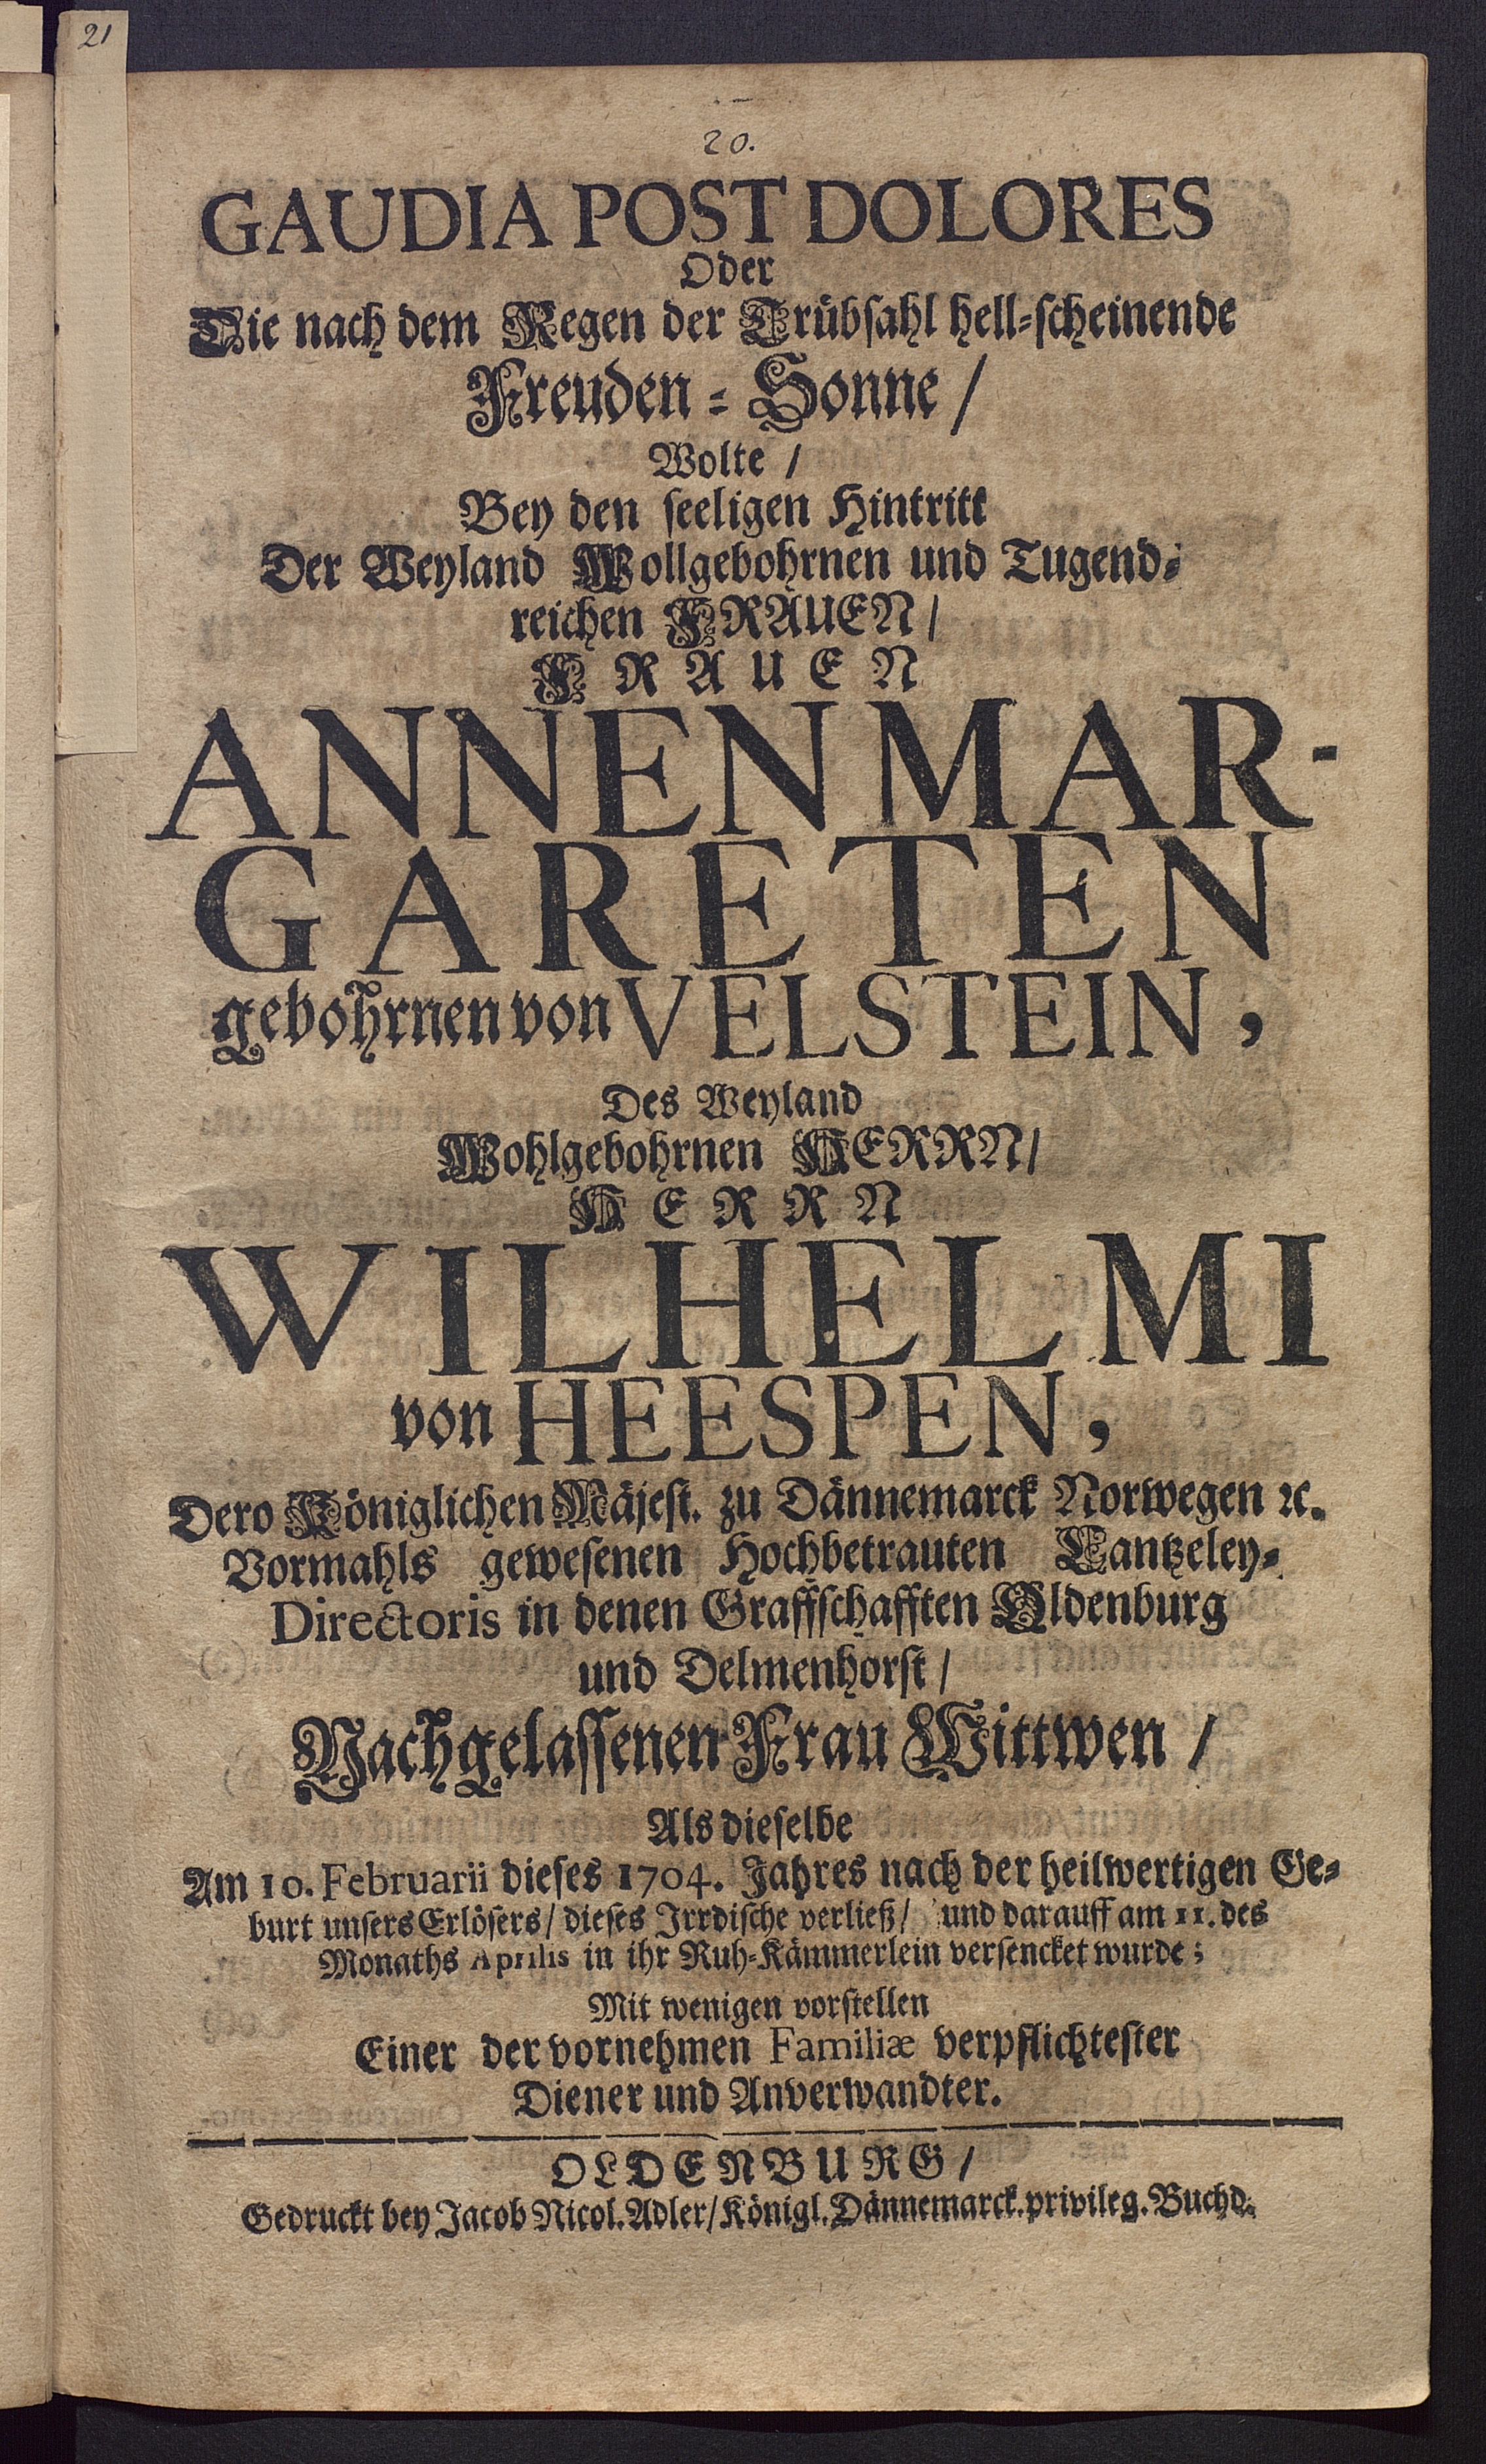 21
20.
GAUDIA POST DOLORES
Oder
Die nach dem Regen der Trübſahl hell-ſcheinende
Freuden-Sonne/
Wolte/
Bey den ſeeligen Hintritt
Der Weyland Wollgebohrnen und Tugend-
reichen FRAUEN/
FRAUEN
ANNEN MAR-
GARETEN
gebohrnen von VELSTEIN,
Des Weyland
Wohlgebohrnen HERRN/
HERRN
WILHELMI
von HEESPEN,
Dero Königlichen Mäjeſt. zu Dännemarck Norwegen ꝛc.
Vormahls geweſenen Hochbetrauten Cantzeley-
Directoris in denen Graffſchafften Oldenburg
und Delmenhorſt/
Nachgelaſſenen Frau Wittwen/
Als dieſelbe
Am 10. Februarii dieſes 1704. Jahres nach der heilwertigen Ge-
burt unſers Erlöſers/ dieſes Irrdiſche verließ/ und darauff am 11. des
Monaths Aprilis in ihr Ruh-Kämmerlein verſencket wurde;
Mit wenigen vorſtellen
Einer der vornehmen Familiæ verpflichteſter
Diener und Anverwandter.
OLDENBURG/
Gedruckt bey Jacob Nicol. Adler/ Königl. Dännemarck. privileg. Buchd.